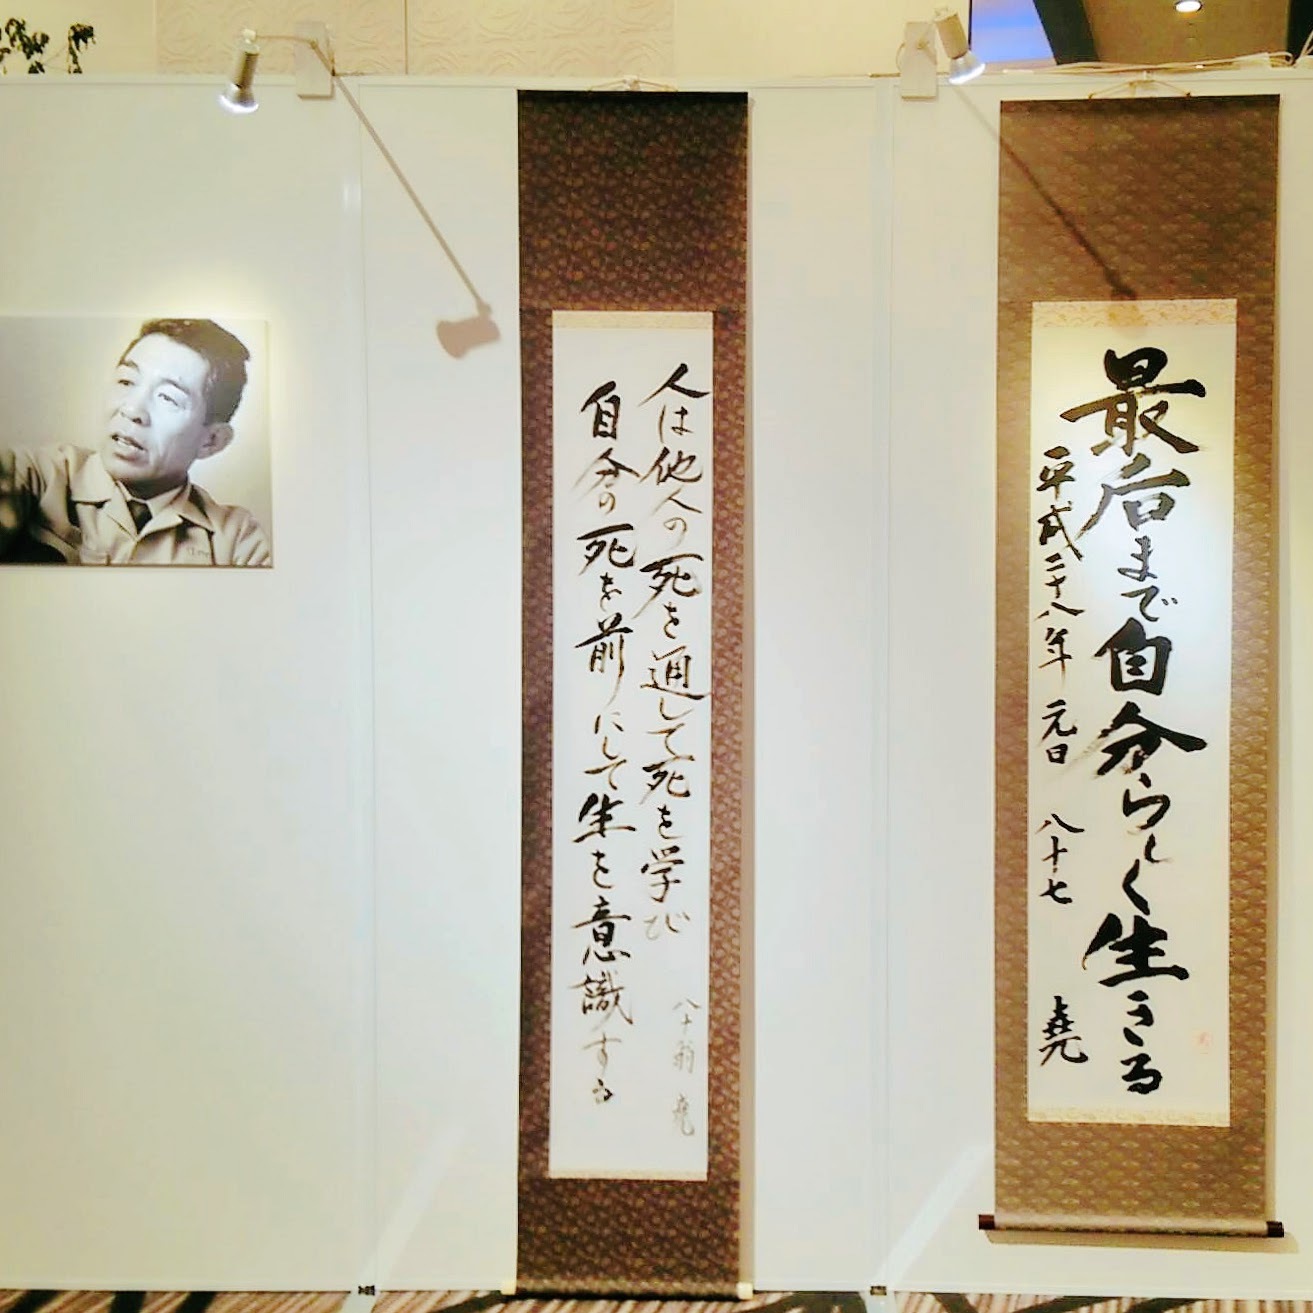 最后まで自分らしく生きる
平成二十八年 元日 八十七 堯
人は他人の死を通して死を学び
八十翁 堯
自分の死を前にして生を意識する